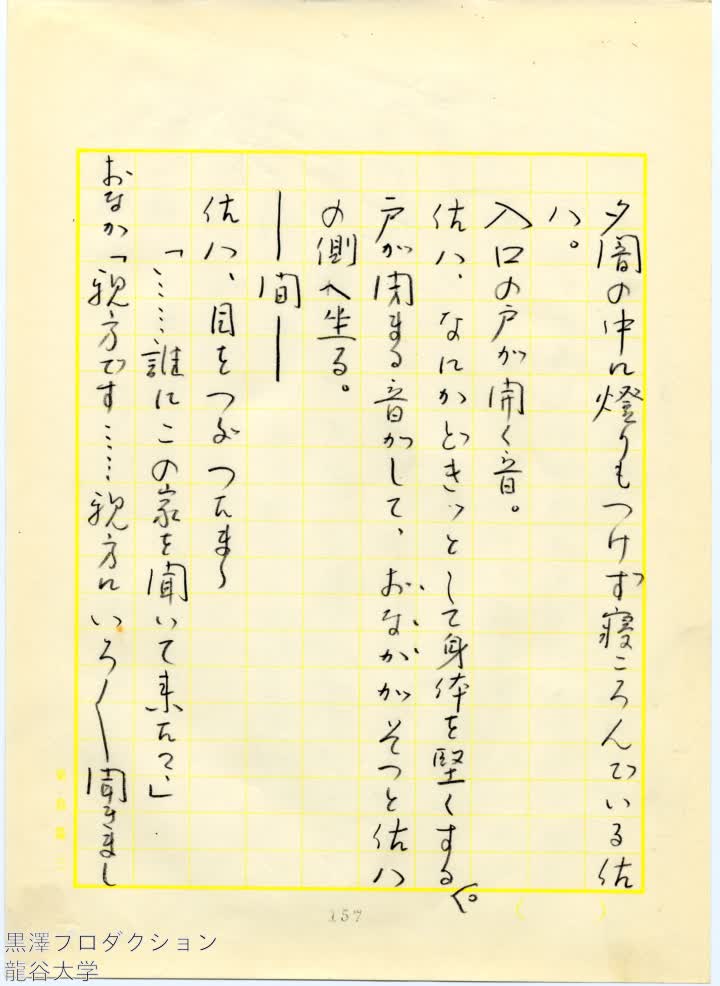 夕闇の中に燈りもつけず寝ころんでいる佐
八。
入口の戸が開く音。
佐八、なにかどきッとして身体を堅くする。
戸が閉まる音がして、おながそっと佐八
の側へ坐る。
――間――
佐八、目をつぶつたまゝ
「……誰にこの家を聞いて来たて」
おなか「親方です……親方にいろ〱聞きまし
157
黒澤プロダクション
龍谷大学